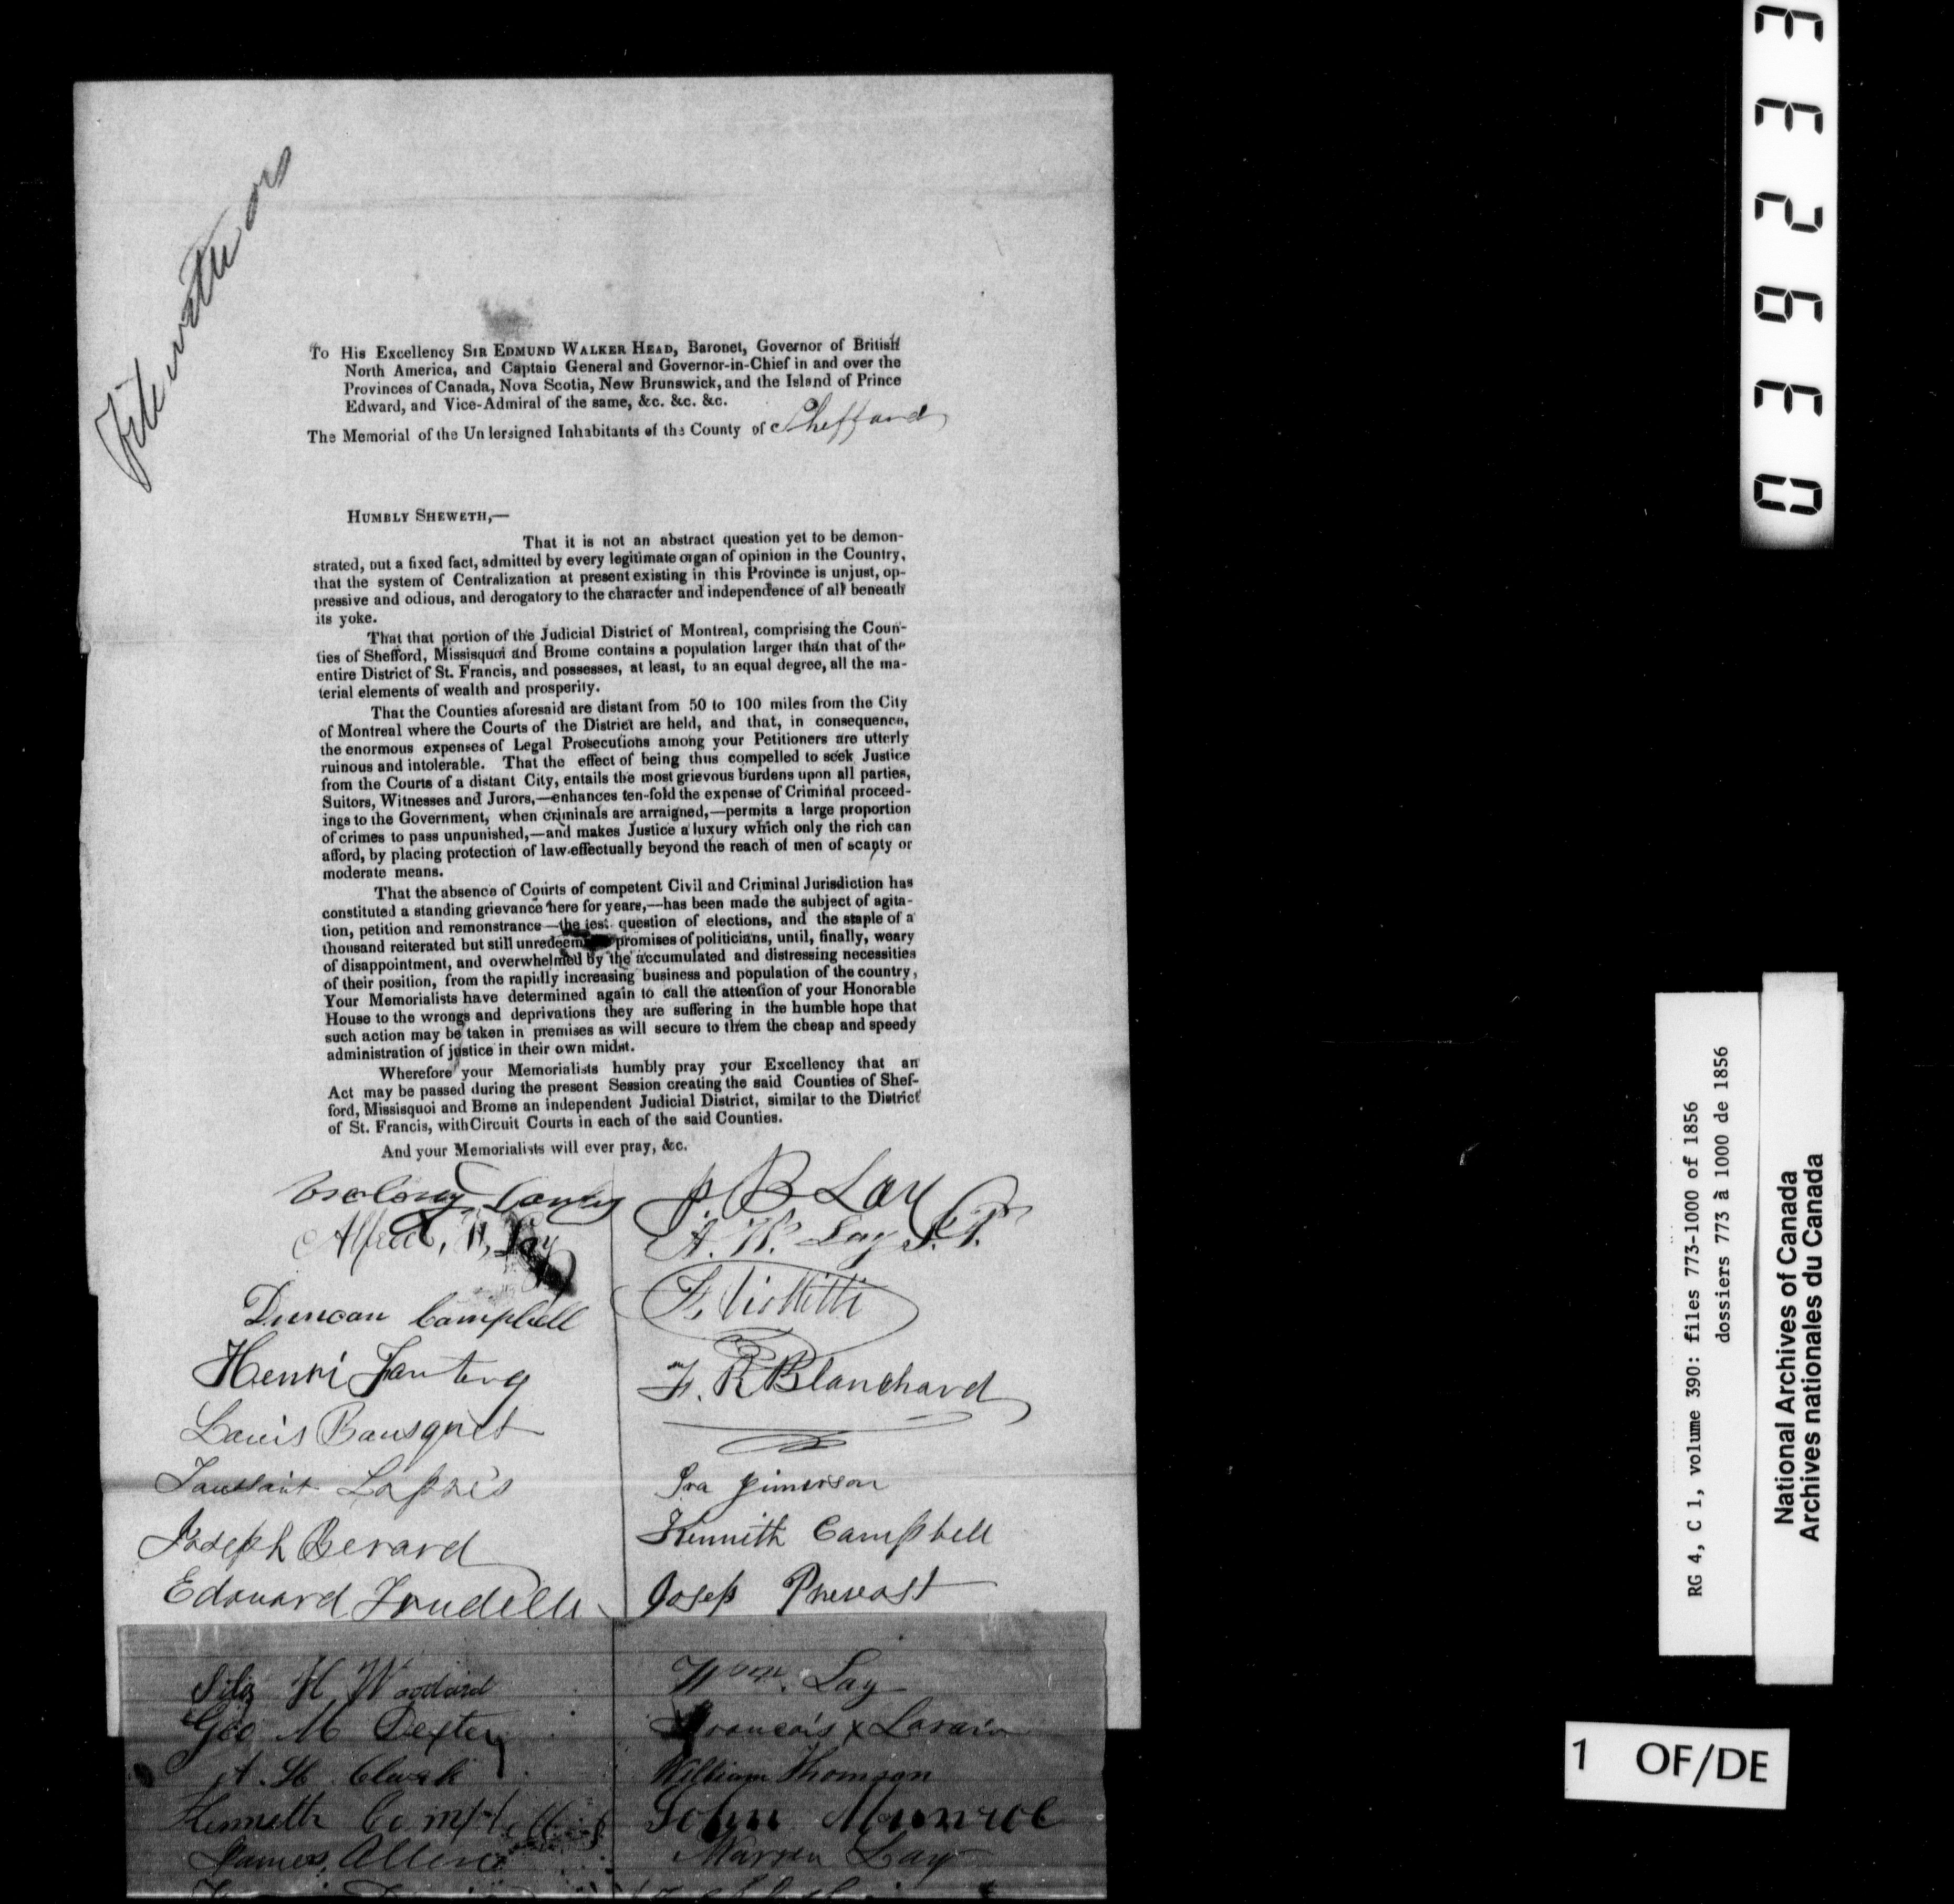 File with ors
To His Excellency SIR EDMUND WALKER HEAD, Baronet, Governor of British
North America, and Captain General and Governor-in-Chief in and over the
Provinces of Canada, Nova Scotia, New Brunswick, and the Island of Prince
Edward, and Vice-Admiral of the same, &c. &c. &c.
The Memorial of the Un lersigned Inhabitants of the County of Shefford
HUMBLY SHEWETH,—
That it is not an abstract question yet to be demon-
strated, out a fixed fact, admitted by every legitimate organ of opinion in the Country,
that the system of Centralization at present existing in this Province is unjust, op-
pressive and odious, and derogatory to the character and independence of all beneath
its yoke.
That that portion of the Judicial District of Montreal, comprising the Coun-
ties of Shefford, Missisquoi and Brome contains a population larger than that of the
entire District of St. Francis, and possesses, at least, to an equal degree, all the ma-
terial elements of wealth and prosperity.
That the Counties aforesaid are distant from 50 to 100 miles from the City
of Montreal where the Courts of the District are held, and that, in consequence,
the enormous expenses of Legal Prosecutions among your Petitioners are utterly
ruinous and intolerable. That the effect of being thus compelled to seek Justice
from the Courts of a distant City, entails the most grievous burdens upon all parties,
Suitors, Witnesses and Jurors,—enhances ten-fold the expense of Criminal proceed-
ings to the Government, when criminals are arraigned,—permits a large proportion
of crimes to pass unpunished,—and makes Justice a luxury which only the rich can
afford, by placing protection of law effectually beyond the reach of men of scanty or
moderate means.
That the absence of Courts of competent Civil and Criminal Jurisdiction has
constituted a standing grievance here for years,—has been made the subject of agita-
tion, petition and remonstrance—the test question of elections, and the staple of a
thousand reiterated but still unredeemed promises of politicians, until, finally, weary
of disappointment, and overwhelmed by the accumulated and distressing necessities
of their position, from the rapidly increasing business and population of the country,
Your Memorialists have determined again to call the attention of your Honorable
House to the wrongs and deprivations they are suffering in the humble hope that
such action may be taken in premises as will secure to them the cheap and speedy
administration of justice in their own midst.
Wherefore your Memorialists humbly pray your Excellency that an
Act may be passed during the present Session creating the said Counties of Shef-
ford, Missisquoi and Brome an independent Judicial District, similar to the District
of St. Francis, with Circuit Courts in each of the said Counties.
And your Memorialists will ever pray, &c.
Alfred
Duncan Campbell
Henri
Louis Bousquet
Toussaint
Joseph Berard
Edouard
H Woodard
Geo M Dexter
A. H. Clark
Kenneth Campbell
James Allen
J. B Lay
A. W. Lay
F.
F. R Blanchard
Ira Jimerson
Kennith Campbell
Josep Prevost
Wm. Lay
Francois x
William Thomson
John Munroe
Warren Lay
03 9 2 3 3
RG 4, C 1, volume 390: files 773-1000 of 1856
dossiers 773 à 1000 de 1856
National Archives of Canada
Archives nationales du Canada
1 OF/DE